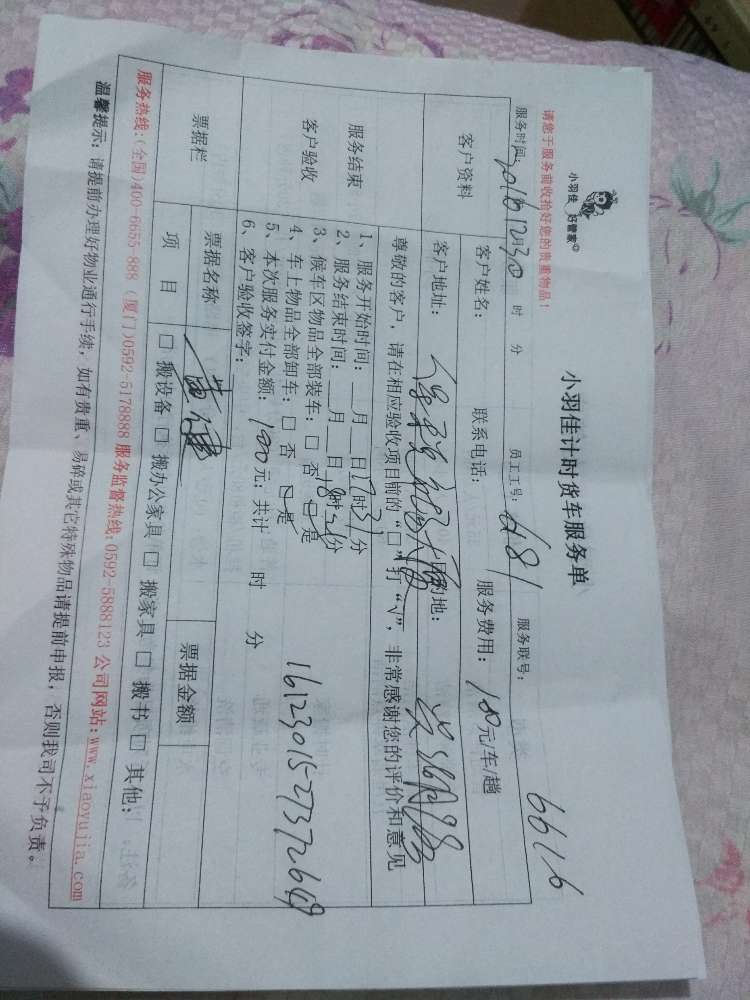 小羽佳 好管家
小羽佳计时货车服务单
请您于服务前收拾好您的贵重物品!
6616
服务时间: 2016 12月30 时 分 员工工号: 481 服务联号:
客户资料
客户姓名: 联系电话: 服务费用: 180元/车/趟
客户地址: 目的地:
尊敬的客户,请在相应验收项目前的“□”打“√”,非常感谢您的评价和意见
服务结束
客户验收
1、服务开始时间:__月__日17时31分
2、服务结束时间:__月__日18时21分
3、候车区物品全部装车:□ 否 □ 是
4、车上物品全部卸车:□ 否 □ 是
5、本次服务实付金额: 180元;共计 时 分
6、客户验收签字:
16123015-27372649
票据栏 票据名称 票据金额
项 目 □ 搬设备 □ 搬办公家具 □ 搬家具 □ 搬书 □ 其他:
服务热线:(全国)400-6655-888 (厦门)0592-5178888 服务监督热线:0592-5888123 公司网站:www.xiaoyujia.com
温馨提示:请提前办理好物业通行手续,如有贵重、易碎或其它特殊物品请提前申报,否则我司不予负责。